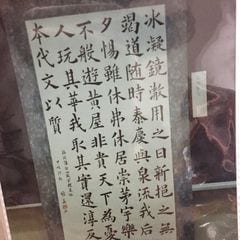 冰凝鏡澈用之日新挹之無
竭道隨時泰慶與泉流我后
夕惕雖休弗休居崇茅宇樂
不般遊黃屋非貴天下為憂
人玩其華我取其實還淳反
本代文以質